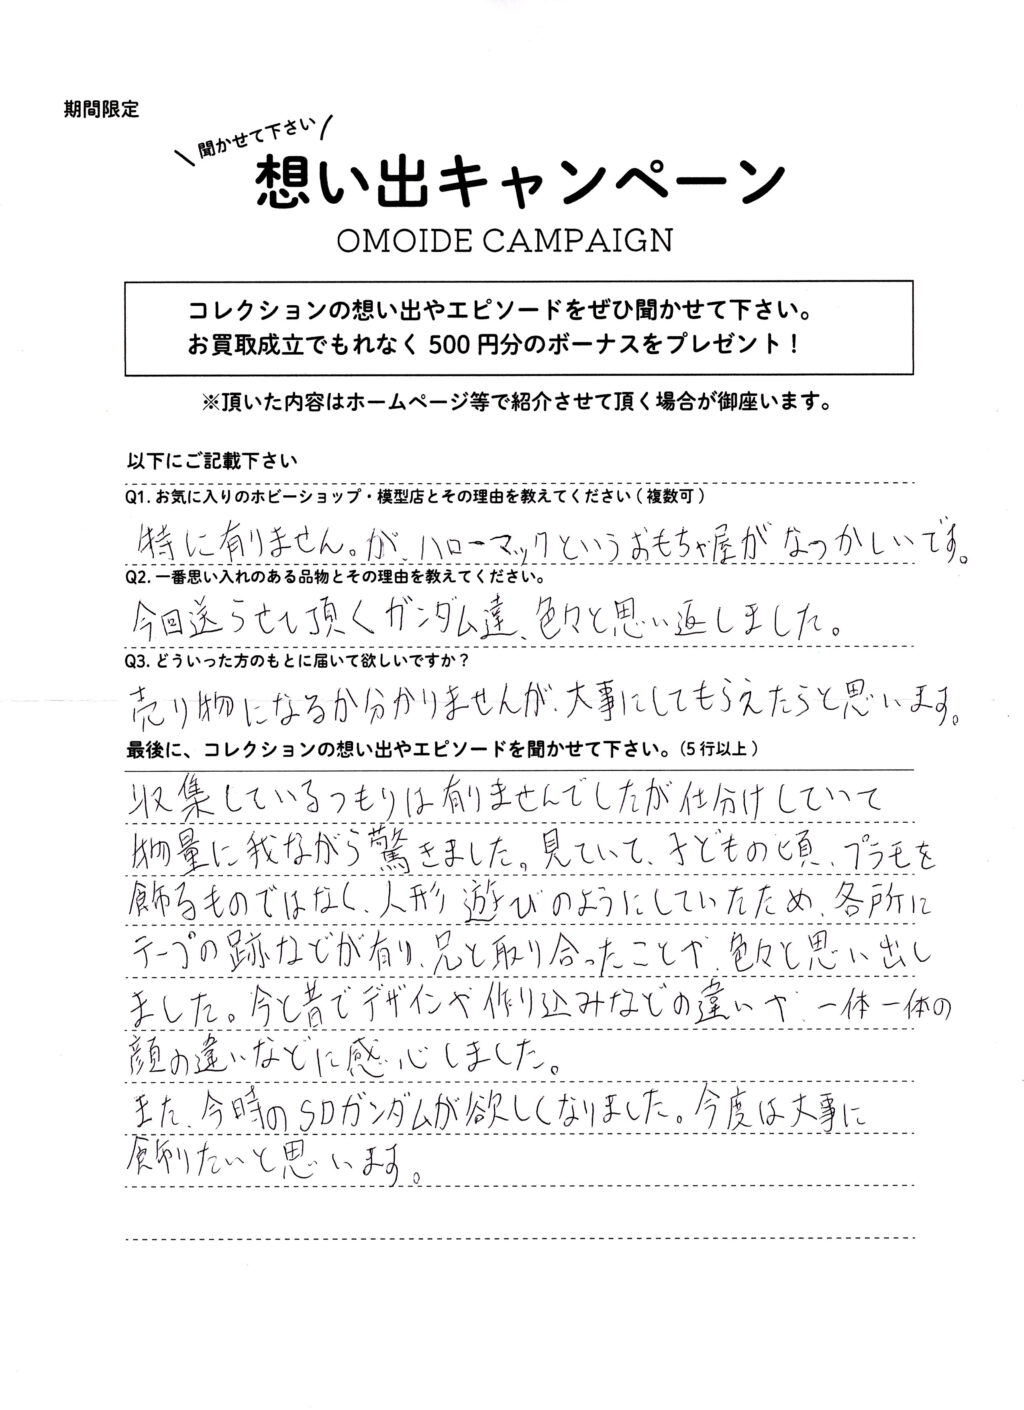 期間限定
聞かせて下さい
想い出キャンペーン
OMOIDE CAMPAIGN
コレクションの想い出やエピソードをぜひ聞かせて下さい。
お買取成立でもれなく 500 円分のボーナスをプレゼント！
※頂いた内容はホームページ等で紹介させて頂く場合が御座います。
以下にご記載下さい
Q1. お気に入りのホビーショップ・模型店とその理由を教えてください ( 複数可 )
特に有りません。が、ハローマックというおもちゃ屋がなつかしいです。
Q2. 一番思い入れのある品物とその理由を教えてください。
今回送らせて頂くガンダム達、色々と思い返しました。
Q3. どういった方のもとに届いて欲しいですか？
売り物になるか分かりませんが、大事にしてもらえたらと思います。
最後に、コレクションの想い出やエピソードを聞かせて下さい。（5 行以上）
収集しているつもりは有りませんでしたが仕分けしていて
物量に我ながら驚きました。見ていて、子どもの頃、プラモを
飾るものではなく、人形遊びのようにしていたため、各所に
テープの跡などが有り、兄と取り合ったことや、色々と思い出し
ました。今と昔でデザインや作り込みなどの違いや、一体一体の
顔の違いなどに感心しました。
また、今時のSDガンダムが欲しくなりました。今度は大事に
飾りたいと思います。